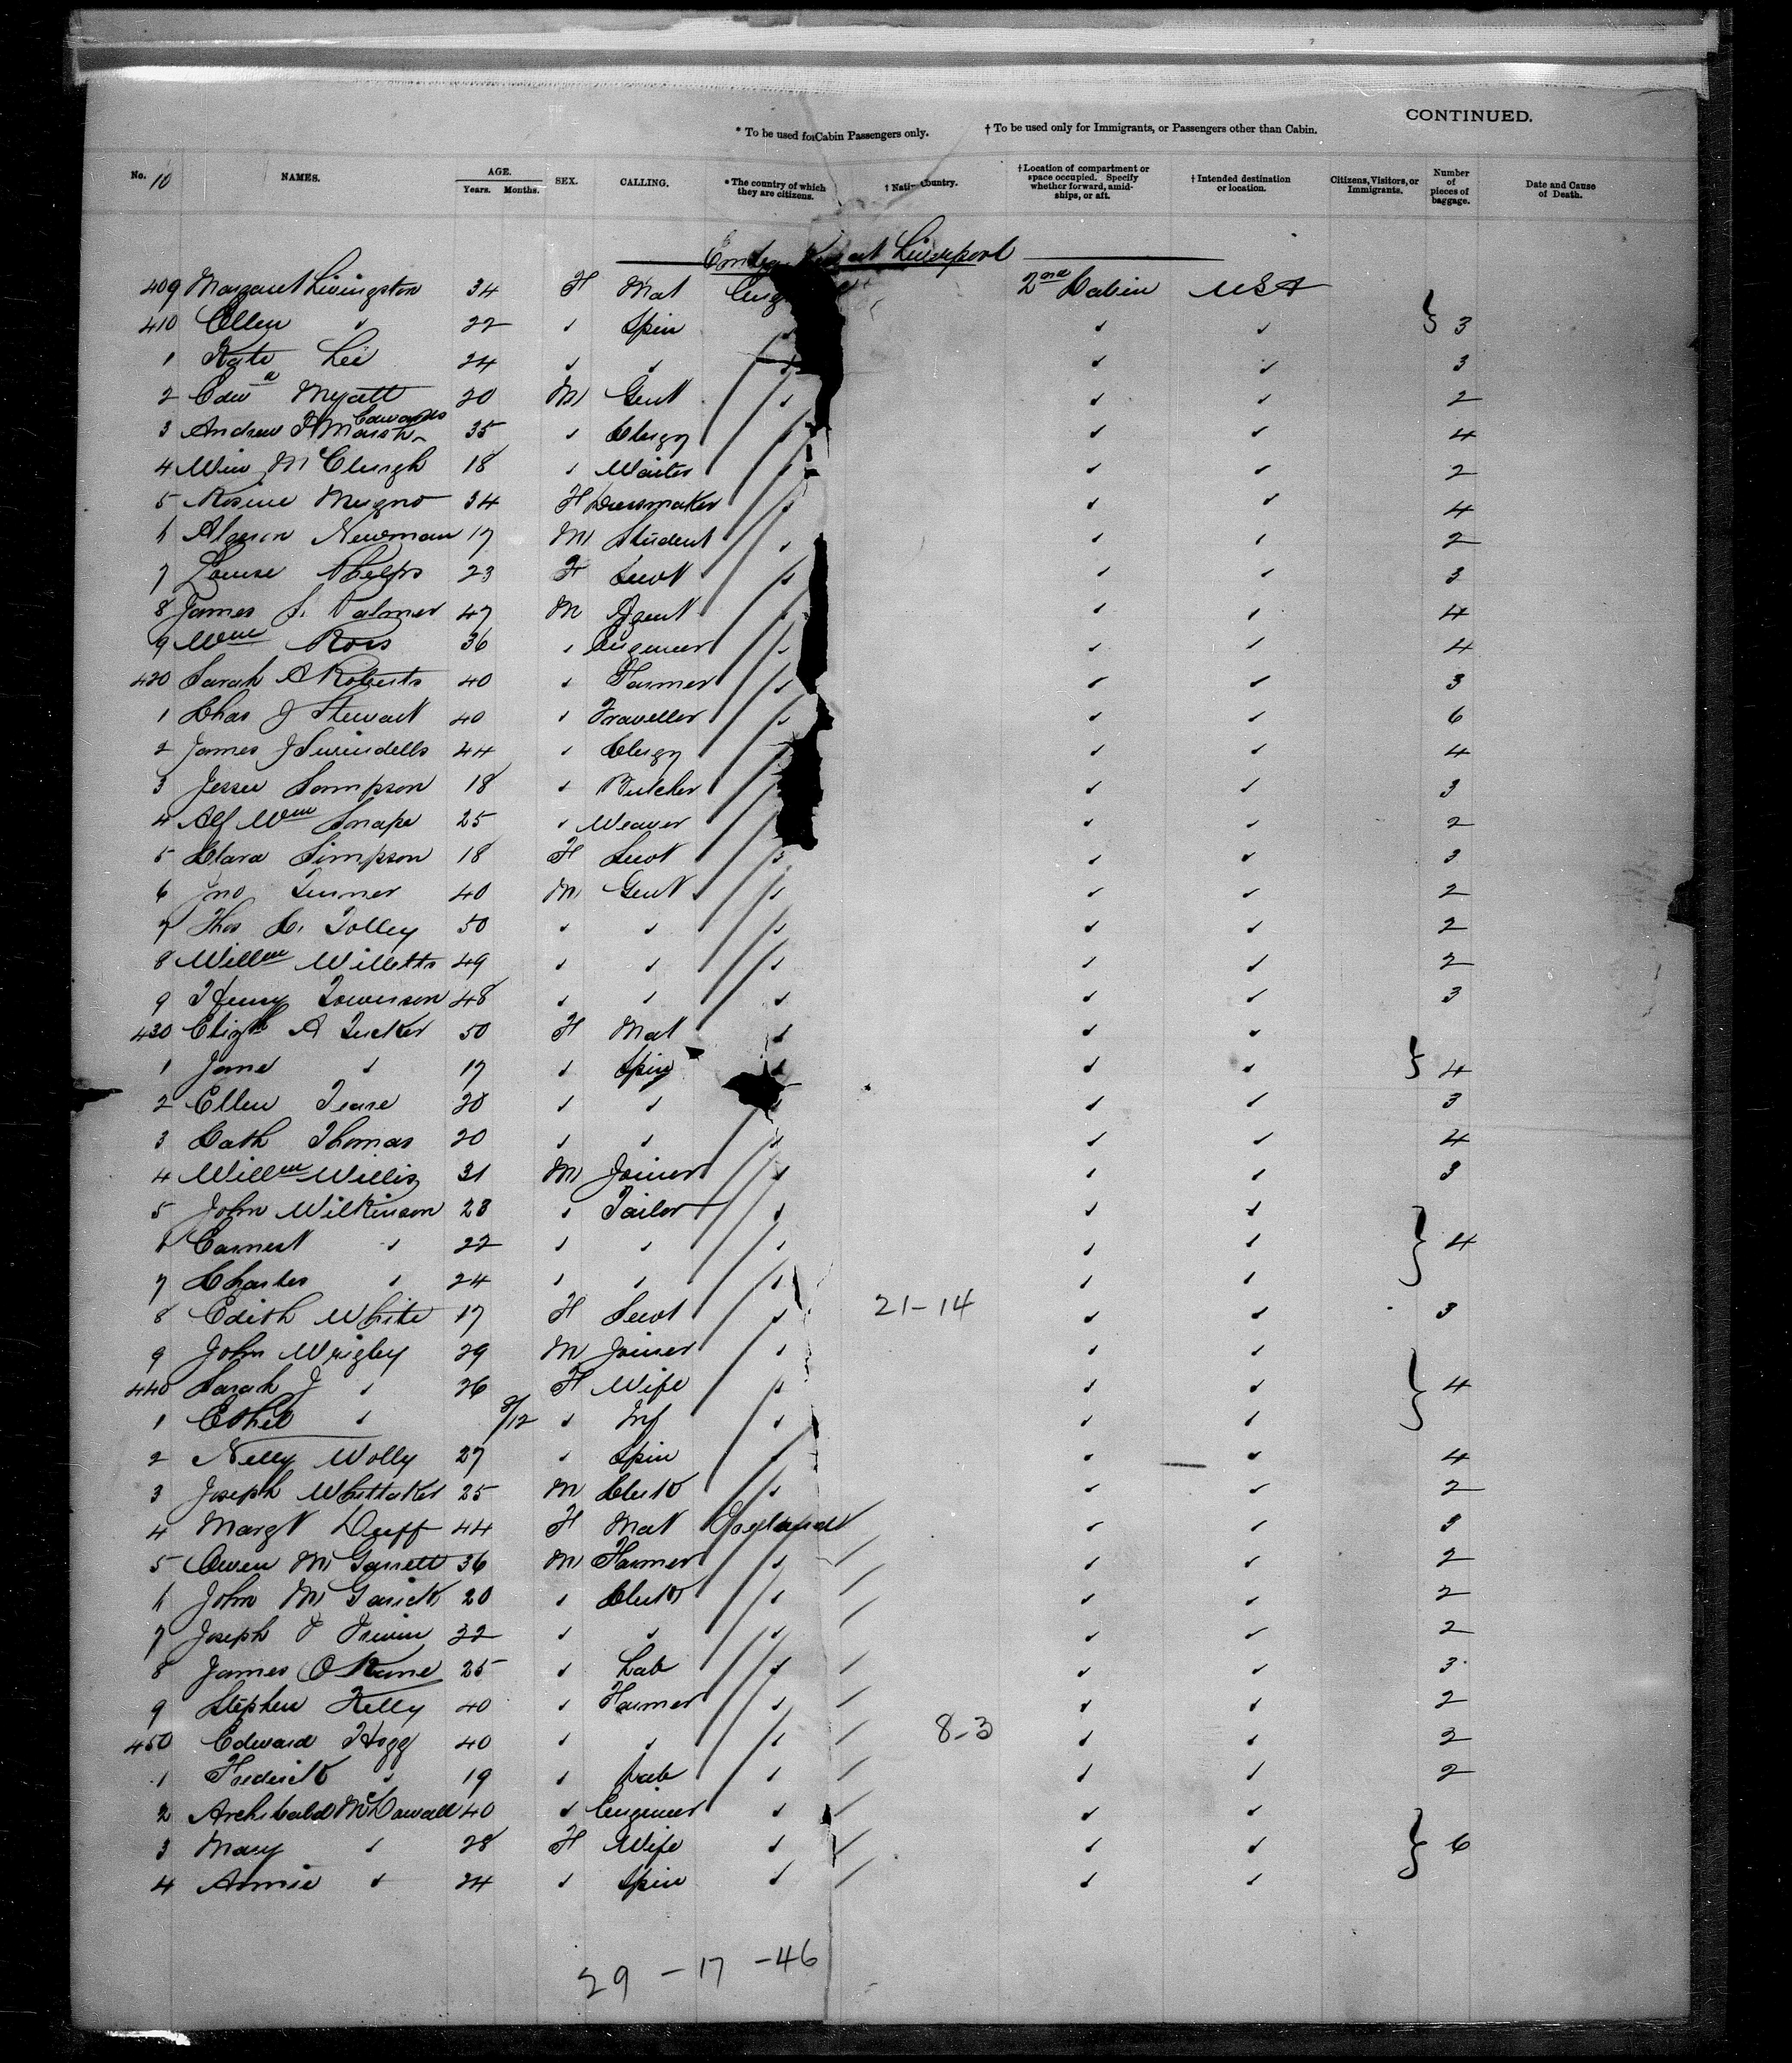 CONTINUED.
* To be used for Cabin Passengers only. † To be used only for Immigrants, or Passengers other than Cabin.
No. 10 NAMES. AGE. Years. Months. SEX. CALLING. * The country of which they are citizens. † Nati- Country. † Location of compartment or space occupied. Specify whether forward, amidships, or aft. † Intended destination or location. Citizens, Visitors, or Immigrants. Number of pieces of baggage. Date and Cause of Death.
at Liverpool
409 Margaret Livingston 34 F Mat 2nd Cabin USA
410 Ellen " 22 " Spin " " } 3
1 Kate Lee 24 " " " " 3
2 Edwd Myatt 20 M Gent " " " 2
3 Andrew Marsh Edwards 35 " Clergy " " 4
4 Wm McClurgh 18 " Waiter " " " 2
5 Rosine Mugno 34 F Dressmaker " " " 4
6 Algeron Newman 17 M Student " " " 2
7 Louise Phelps 23 F Servt " " " 3
8 James S. Palmer 47 M Agent " " 4
9 Wm Ross 36 " Engineer " " " 4
420 Sarah A Roberts 40 " Farmer " " " 3
1 Chas J Stewart 40 " Traveller " " " 6
2 James J Swindells 44 " Clergy " " 4
3 Jesse Sampson 18 " Butcher " " 3
4 Alf Wm Snape 25 " Weaver " " 2
5 Clara Simpson 18 F Servt " " " 3
6 Jno Turner 40 M Gent " " " 2
7 Thos C. Tolley 50 " " " " " 2
8 Willm Willetts 49 " " " " " 2
9 Henry Towerson 48 " " " " " 3
430 Elizth A Tucker 50 F Mat " " "
1 Jane " 17 " Spin " " " } 4
2 Ellen Tease 20 " " " " " 3
3 Cath Thomas 20 " " " " " 4
4 Willm Willis 31 M Joiner " " " 3
5 John Wilkinson 28 " Tailor " " "
6 Earnest " 22 " " " " " } 4
7 Charles " 24 " " " " "
8 Edith White 17 F Servt " 21-14 " " 3
9 John Wrigley 29 M Joiner " " "
440 Sarah J " 26 F Wife " " " } 4
1 Ethel " /12 " Inf " " "
2 Nelly Wolly 27 " Spin " " " 4
3 Joseph Whittaker 25 M Clerk " " " 2
4 Margt Duff 44 F Mat " " 3
5 Owen McGarrett 36 M Farmer " " " 2
6 John McGarick 20 " Clerk " " " 2
7 Joseph Irwin 22 " " " " " 2
8 James O Kane 25 " Lab " " " 3
9 Stephen Kelly 40 " Farmer " " " 2
450 Edward Hogg 40 " " " 8-3 " " 2
1 Frederick " 19 " Lab " " " 2
2 Archibald McDowall 40 " Engineer " " "
3 Mary " 28 F Wife " " " } 6
4 Annie " 24 " Spin " " "
29 - 17 - 46